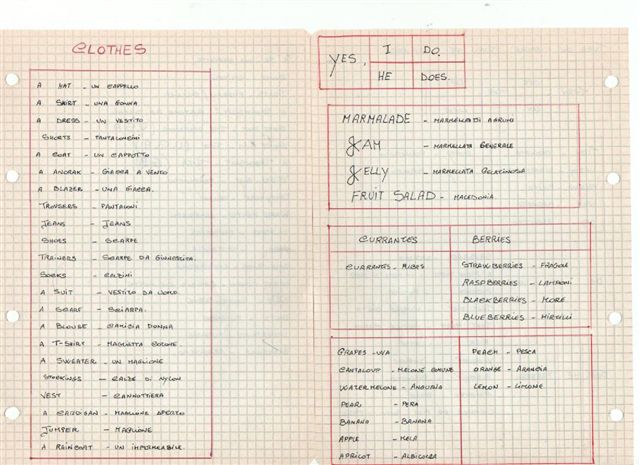 CLOTHES
A HAT - UN CAPPELLO
A SKIRT - UNA GONNA
A DRESS - UN VESTITO
SHORTS - PANTALONCINI
A COAT - UN CAPPOTTO
A ANORAK - GIACCA A VENTO
A BLAZER - UNA GIACCA.
TROUSERS - PANTALONI
JEANS - JEANS
SHOES - SCARPE
TRAINERS - SCARPE DA GINNASTICA.
SOCKS - CALZINI
A SUIT - VESTITO DA UOMO.
A SCARF - SCIARPA.
A BLOUSE - CAMICIA DONNA
A T-SHIRT - MAGLIETTA COTONE
A SWEATER - UN MAGLIONE
STOCKINGS - CALZE DI NYLON
VEST - CANNOTTIERA
A CARDIGAN - MAGLIONE APERTO
JUMPER - MAGLIONE
A RAINCOAT - UN IMPERMEABILE.
YES, I DO.
HE DOES.
MARMALADE - MARMELLATA DI AGRUMI
JAM - MARMELLATA GENERALE
JELLY - MARMELLATA GELATINOSA
FRUIT SALAD - MACEDONIA
CURRANTES
CURRANTES - RIBES
BERRIES
STRAWBERRIES - FRAGOLE
RASPBERRIES - LAMPONI
BLACKBERRIES - MORE
BLUEBERRIES - MIRTILLI
GRAPES - UVA
CANTALOUP - MELONE COMUNE
WATERMELONE - ANGURIA
PEAR - PERA
BANANA - BANANA
APPLE - MELA
APRICOT - ALBICOCCA
PEACH - PESCA
ORANGE - ARANCIA
LEMON - LIMONE